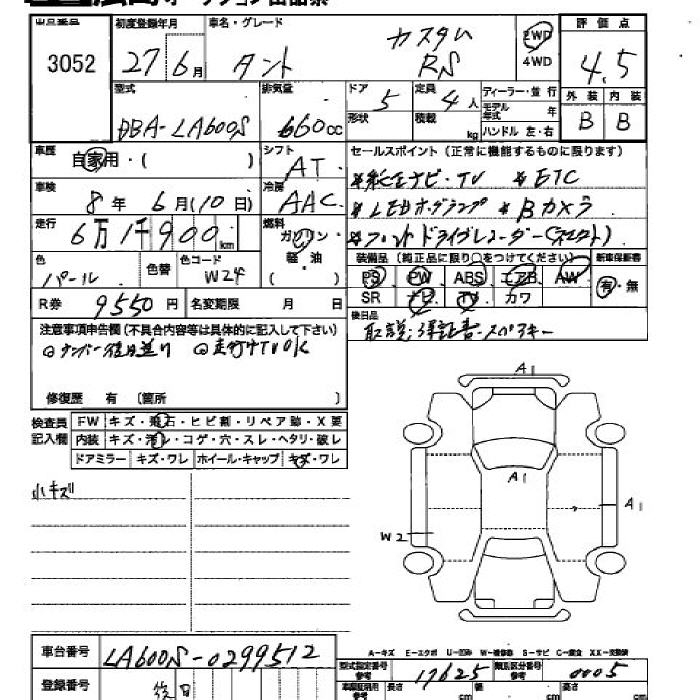 出品番号 初度登録年月 車名・グレード 評価点
3052 27年6月 タント カスタム RS 2WD 4WD 4.5
外装 内装
B B
型式 排気量 ドア 定員 ディーラー・並行
DBA-LA600S 660cc 5 4人 モデル年式 年
形状 積載 kg ハンドル 左・右
車歴 シフト セールスポイント（正常に機能するものに限ります）
自家用・（ ） AT
*純正ナビ・TV *ETC
車検 冷房
8年6月（10日） AAC
*LEDヘッドランプ *Bカメラ
走行 燃料
6万1千900km ガソリン・軽油（ ）
*フロントドライブレコーダー
色 色替 色コード
パール W24
装備品（純正品に限り○をつけてください） 新車保証書
PS PW ABS エアB AW 有・無
SR ナビ TV カワ
R券 9550円 名変期限 月 日
後日品
取説・保証書・スペアキー
注意事項申告欄（不具合内容等は具体的に記入して下さい）
◎ナンバー後日送り ◎走行中TVOK
修復歴 有 〔箇所 〕
検査員記入欄
FW キズ・飛石・ヒビ割・リペア跡・X要
内装 キズ・汚レ・コゲ・穴・スレ・ヘタリ・破レ
ドアミラー キズ・ワレ ホイール・キャップ キズ・ワレ
小キズ
A1
A1
A1
W2
車台番号 LA600S-0299512
A-キズ E-エクボ U-凹み W-補修跡 S-サビ C-腐食 XX-交換済
型式指定番号 参考 17625 類別区分番号 参考 0005
登録番号 後日
長さ cm 幅 cm 高さ cm